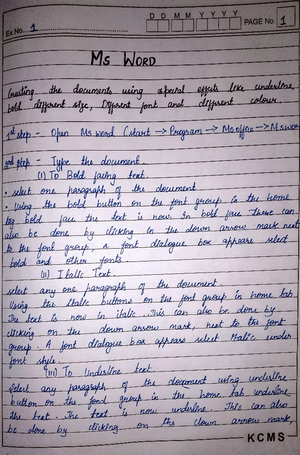 D D M M Y Y Y Y
Ex No. 1
PAGE No. 1
Ms WORD
Creating the documents using special effects like underline,
bold different size, Different font and different colour.
1st step - Open Ms word (start → Program → Ms office → Ms word
2nd step - Type the document.
(I) To Bold facing text.
• select one paragraph of the document
• Using the bold button on the font group. In the home
tag bold face the text is now. In bold face these can
also be done by clicking in the down arrow mark next
to the font group, a font dialogue box appears select
bold and other fonts.
(II) Italic Text.
select any one paragraph of the document.
Using the Italic buttons on the font group in home tab.
The text is now in italic. This can also be done by
clicking on the down arrow mark, next to the font
group. A font dialogue box appears select Italic under
font style.
(III) To Underline text.
Select any paragraph of the document using underline
button on the fond group in the home tab underline
the text. The text is now underline. This can also
be done by clicking on the down arrow mark,
KCMS